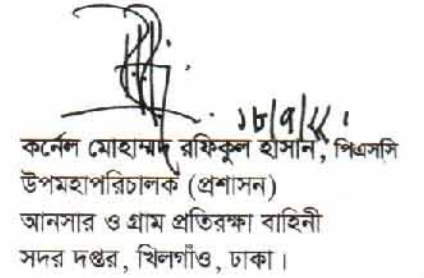 ১৮/৭/২২
কর্নেল মোহাম্মদ রফিকুল হাসান, পিএসসি
উপমহাপরিচালক (প্রশাসন)
আনসার ও গ্রাম প্রতিরক্ষা বাহিনী
সদর দপ্তর, খিলগাঁও, ঢাকা।